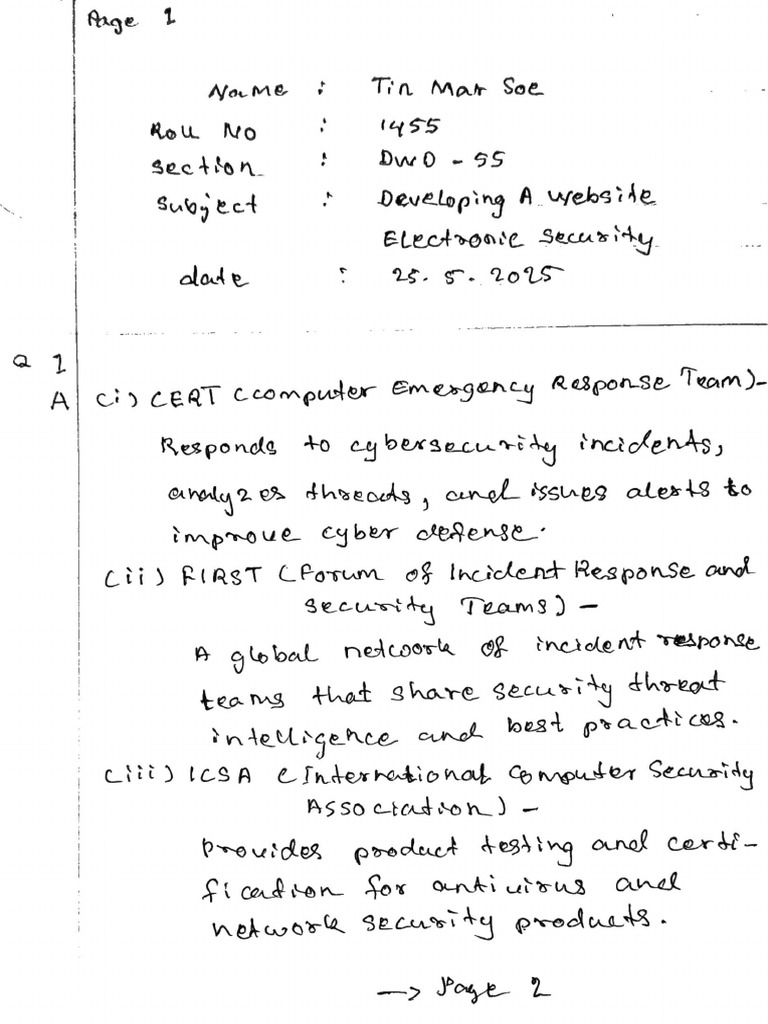 Page 1
Name : Tin Mar Soe
Roll No : 1455
section : DWD - 55
Subject : Developing A website
Electronic Security
date : 25. 5. 2025
Q 1
A (i) CERT (computer Emergency Response Team)-
Responds to cybersecurity incidents,
analyzes threads, and issues alerts to
improve cyber defense.
(ii) FIRST (Forum of Incident Response and
Security Teams) -
A global network of incident response
teams that share security threat
intelligence and best practices.
(iii) ICSA (International Computer Security
Association) -
Provides product testing and certi-
fication for antivirus and
network security products.
→ Page 2